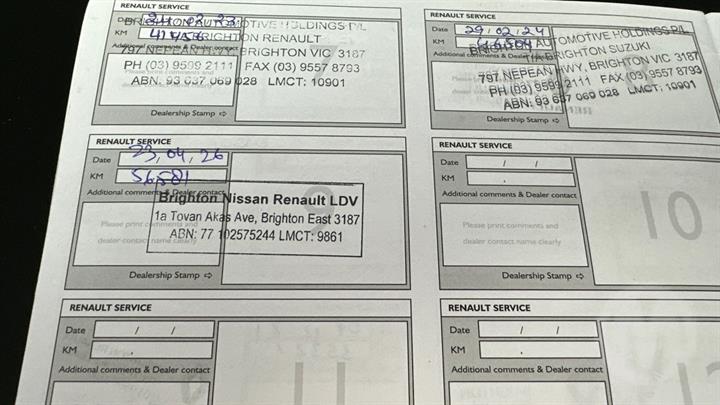 RENAULT SERVICE
Date 24 02 23
KM 41458
BRIGHTON AUTOMOTIVE HOLDINGS P/L
BRIGHTON RENAULT
Additional comments & Dealer contact
797 NEPEAN HWY, BRIGHTON VIC 3187
PH (03) 9599 2111 FAX (03) 9557 8793
ABN: 93 637 069 028 LMCT: 10901
Dealership Stamp ⇨
RENAULT SERVICE
Date 29,02,24
KM
BRIGHTON AUTOMOTIVE HOLDINGS P/L
BRIGHTON SUZUKI
Additional comments & Dealer contact
797 NEPEAN HWY, BRIGHTON VIC 3187
PH (03) 9599 2111 FAX (03) 9557 8793
ABN: 93 637 069 028 LMCT: 10901
Dealership Stamp ⇨
RENAULT SERVICE
Date 23,04,26
KM 56581
Additional comments & Dealer contact
Brighton Nissan Renault LDV
1a Tovan Akas Ave, Brighton East 3187
ABN: 77 102575244 LMCT: 9861
Please print comments and
dealer contact name clearly
Dealership Stamp ⇨
RENAULT SERVICE
Date / /
KM .
Additional comments & Dealer contact
Please print comments and
dealer contact name clearly
Dealership Stamp ⇨
RENAULT SERVICE
Date / /
KM .
Additional comments & Dealer contact
RENAULT SERVICE
Date / /
KM .
Additional comments & Dealer contact